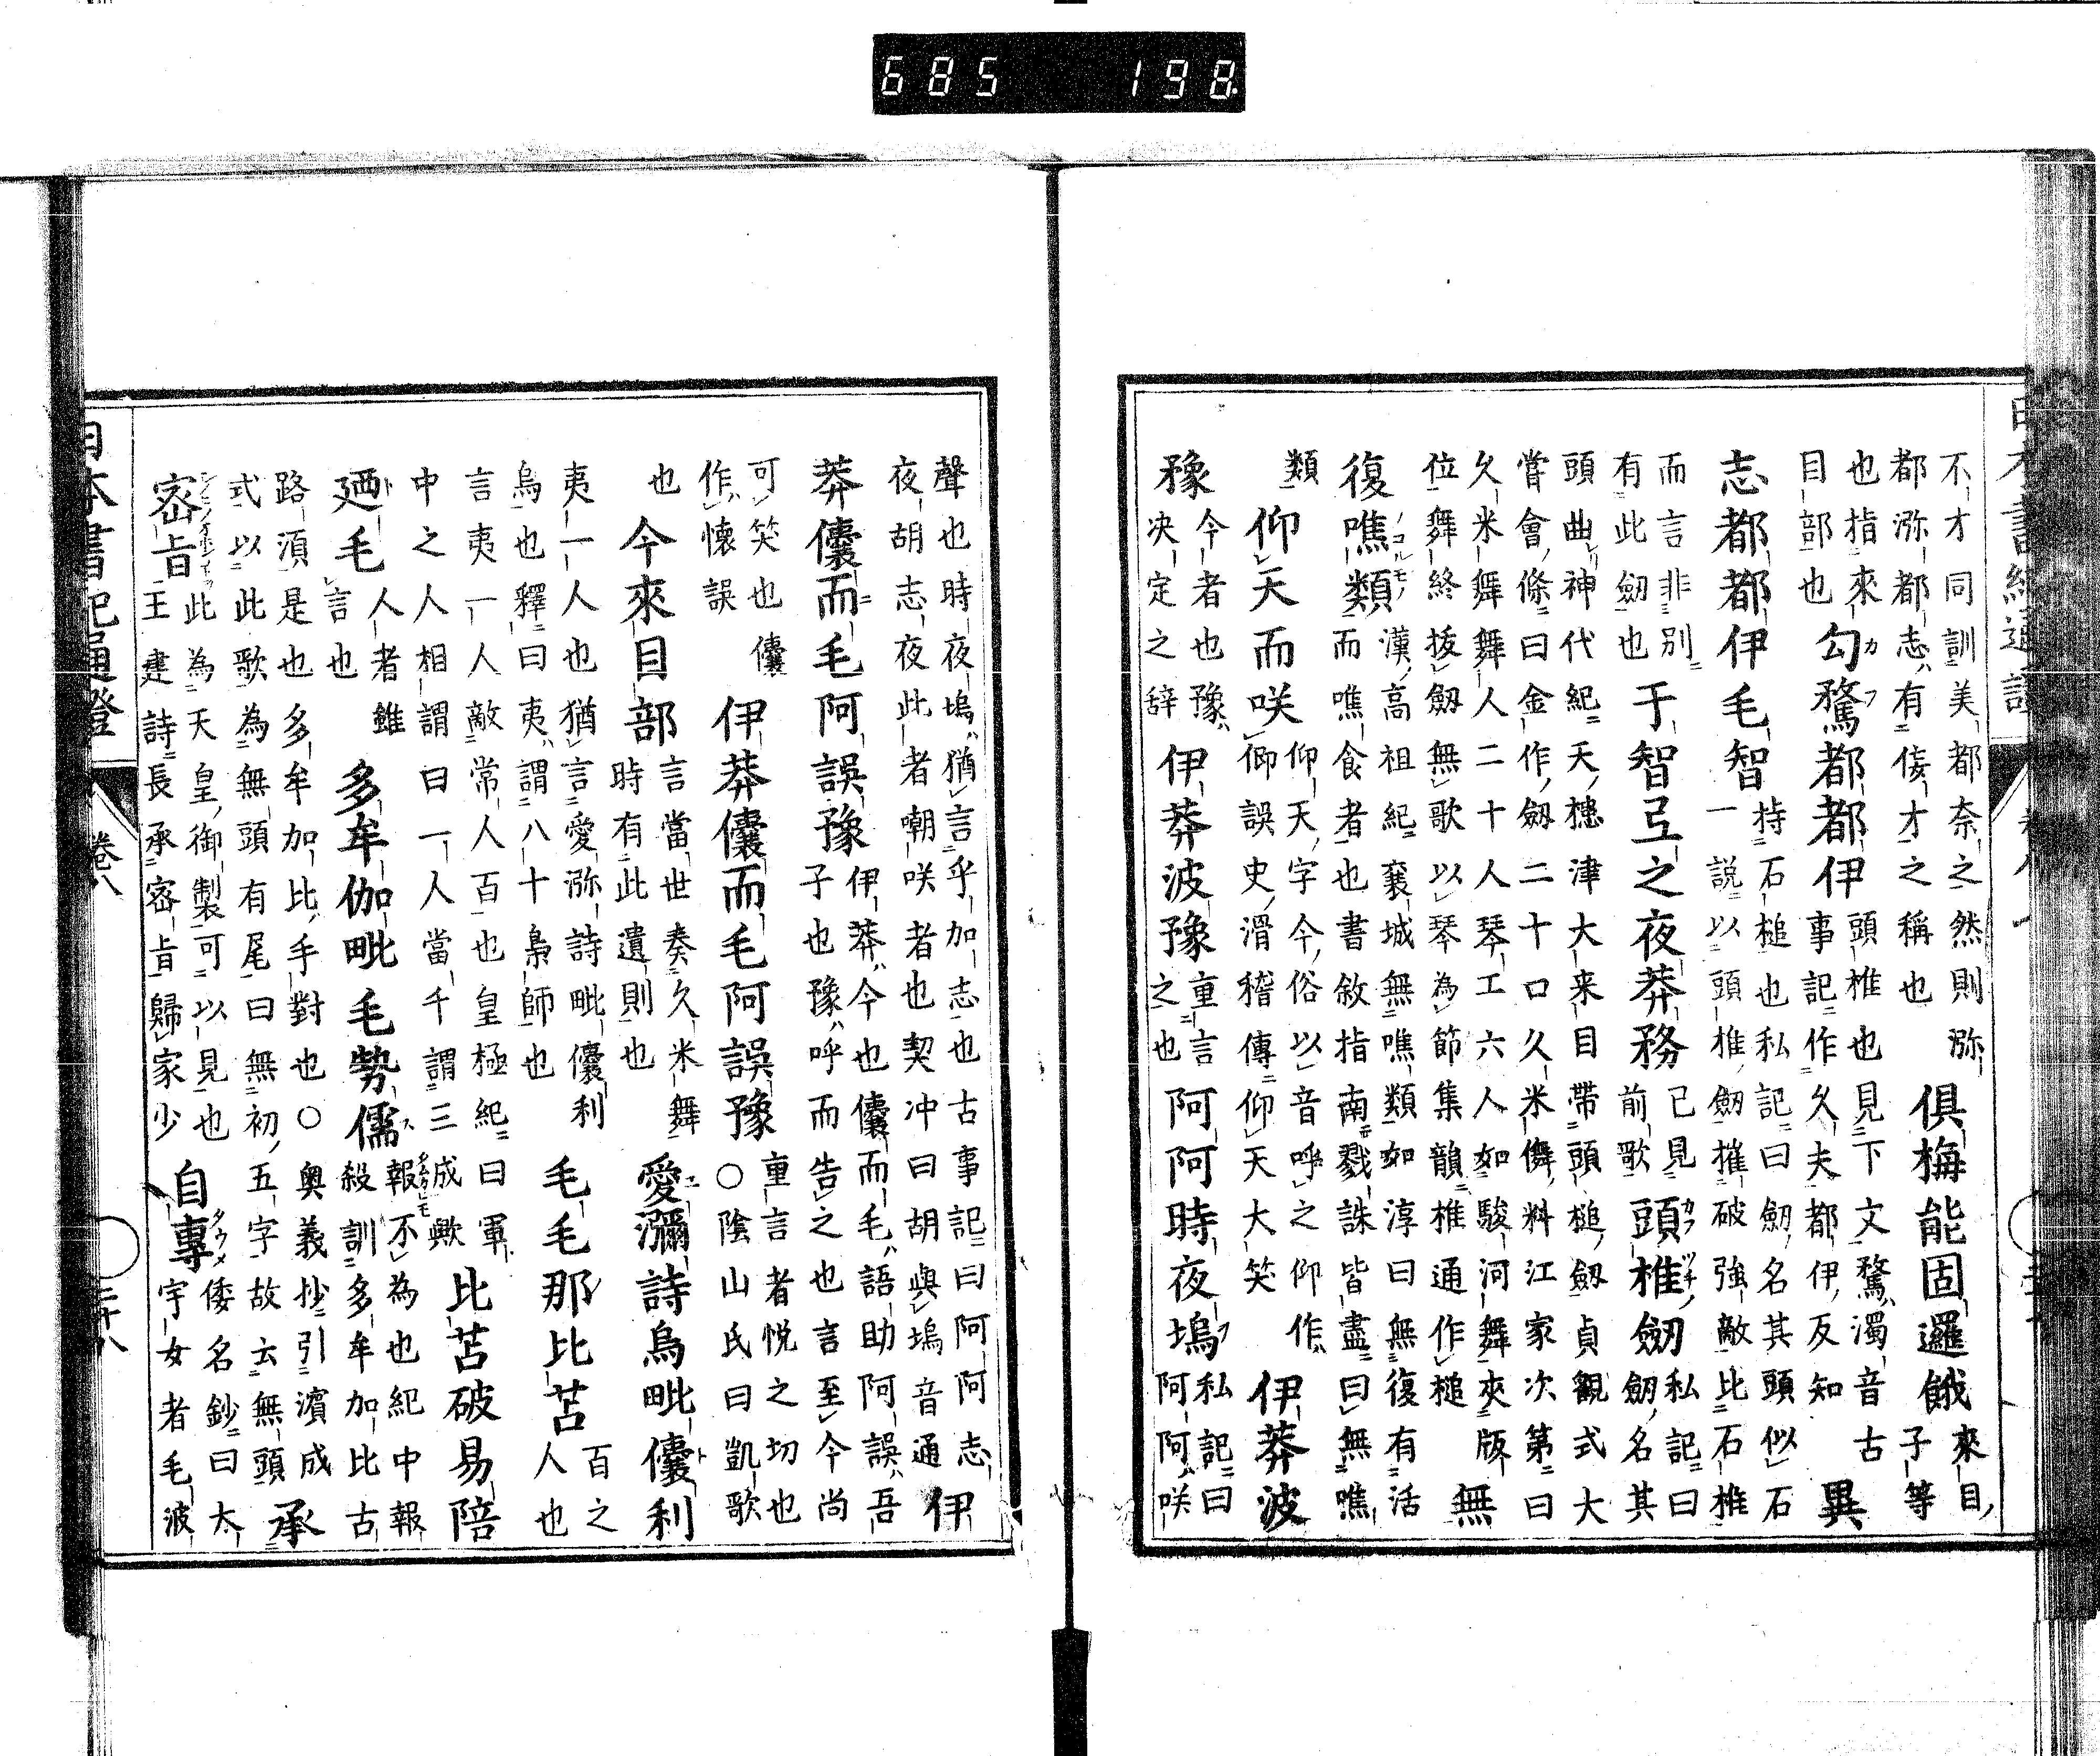 不才同訓美都奈之然則㳽
都㳽都志有倭才之稱也
俱梅能固邏餓
來目
子等
也指來
目部也
勾騖都都伊
頭椎也見下文騖濁音古
事記作久夫都伊反知
異
志都都伊毛智
持石槌也私記曰劔名其頭似石
一說以頭椎劔摧破強敵比石椎
而言非別
有此劔也
于智弖之夜莽務
已見
前歌
頭椎劔
私記曰
劔名其
頭曲神代紀天槵津大来目帶頭槌劔貞觀式大
甞會條曰金作劔二十口久米儛料江家次第曰
久米舞舞人二十人琴工六人如駿河舞夾版
位舞終拔劔無歌以琴為節集韻椎通作槌
無
復噍類
漢高祖紀襄城無噍類如淳曰無復有活
而噍食者也書敘指南戮誅皆盡曰無噍
類
仰天而咲
仰天字今俗以音呼之仰作
仰誤史滑稽傳仰天大笑
伊莽波
豫
今者也豫
决定之辞
伊莽波豫
重言
之也
阿阿時夜塢
私記曰
阿阿咲
聲也時夜塢猶言乎加志也古事記曰阿阿志
夜胡志夜此者嘲咲者也契冲曰胡與塢音通
伊
莽儾而毛阿誤豫
伊莽今也儾而毛語助阿誤吾
子也豫呼而告之也言至今尚
可笑也儾
作懷誤
伊莽儾而毛阿誤豫
重言者悅之切也
○陰山氏曰凱歌
也
今來目部
言當世奏久米舞
時有此遺則也
愛瀰詩烏毗儾利
夷一人也猶言愛㳽詩毗儾利
烏也釋曰夷夷謂八十梟師也
毛毛那比苫
百之
人也
言夷一人敵常人百也皇極紀曰軍
中之人相謂曰一人當千謂三成歟
比苫破易陪
廼毛
人者雖
言也
多牟伽毗毛勢儒
報不為也紀中報
殺訓多牟加比古
路湏是也多牟加比手對也○奧義抄引濱成
式以此歌為無頭有尾曰無初五字故云無頭
承
密旨
此為天皇御製可以見也
王建詩長承密旨歸家少
自專
倭名鈔曰太
宇女者毛波
日本書紀通證
卷八
三十八
685 198